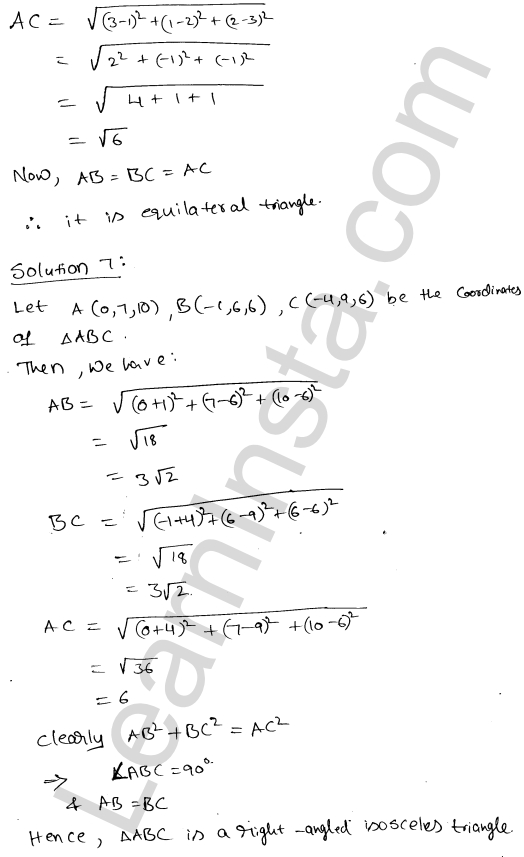 AC = √(3-1)² + (1-2)² + (2-3)²
= √2² + (-1)² + (-1)²
= √4 + 1 + 1
= √6
Now, AB = BC = AC
∴ it is equilateral triangle.
Solution 7:
Let A (0,7,10), B(-1,6,6), C(-4,9,6) be the coordinates
of △ABC.
Then, we have:
AB = √(0+1)² + (7-6)² + (10-6)²
= √18
= 3√2
BC = √(-1+4)² + (6-9)² + (6-6)²
= √18
= 3√2.
AC = √(0+4)² + (7-9)² + (10-6)²
= √36
= 6
Clearly AB² + BC² = AC²
⇒ ∠ABC = 90°
& AB = BC
Hence, △ABC is a right-angled isosceles triangle.
LearnInsta.com